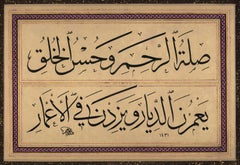 صلة الرحم وحسن الخلق
يعمرن الديار ويزدن في الأعمار